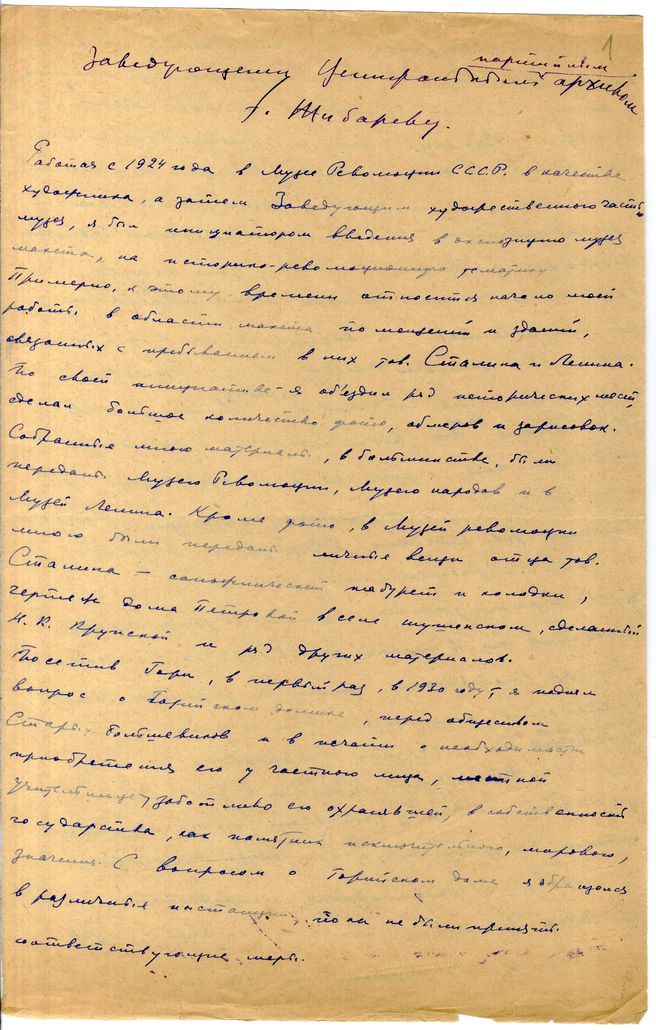 1
партийным
Заведующему Центральным архивом
т. Жибареву.
Работая с 1924 года в Музее Революции СССР. в качестве
художника, а затем Заведующим художественной частью
музея, я был инициатором введения в экспозицию музея
макета, на историко-революционную тематику.
Примерно, к этому времени относится начало моей
работы в области макета помещений и зданий,
связанных с пребыванием в них тов. Сталина и Ленина.
По своей инициативе я объездил ряд исторических мест,
сделал большое количество фото, обмеров и зарисовок.
Собранные мною материалы, в большинстве, были
переданы Музею Революции, Музею народов и в
Музей Ленина. Кроме фото, в Музей революции
мною были переданы личные вещи отца тов.
Сталина – сапожнический табурет и колодки,
чертеж дома Петровой в селе Шушенском, сделанный
Н. К. Крупской и ряд других материалов.
Посетив Гори, в первый раз, в 1930 году, я поднял
вопрос о Горийском домике, перед обществом
Старых большевиков и в печати о необходимости
приобретения его у частного лица, местной
учительницы, заботливо его охранявшей, в собственность
государства, как памятник исключительного, мирового,
значения. С вопросом о Горийском доме я обращался
в различные инстанции, но не были приняты
соответствующие меры.